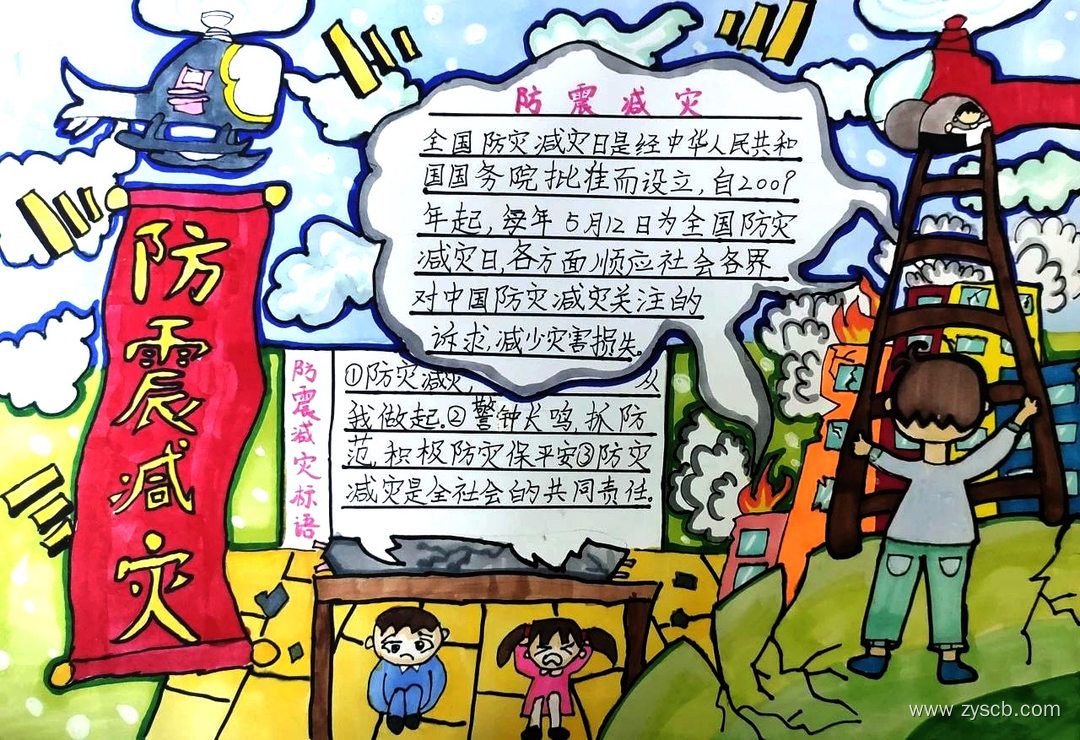 防震减灾
防震减灾
全国防灾减灾日是经中华人民共和
国国务院批准而设立,自2009
年起,每年5月12日为全国防灾
减灾日,各方面顺应社会各界
对中国防灾减灾关注的
诉求,减少灾害损失。
防震减灾标语
①防灾减灾, 从
我做起.②警钟长鸣,抓防
范,积极防灾保平安③防灾
减灾是全社会的共同责任。
www.zyscb.com